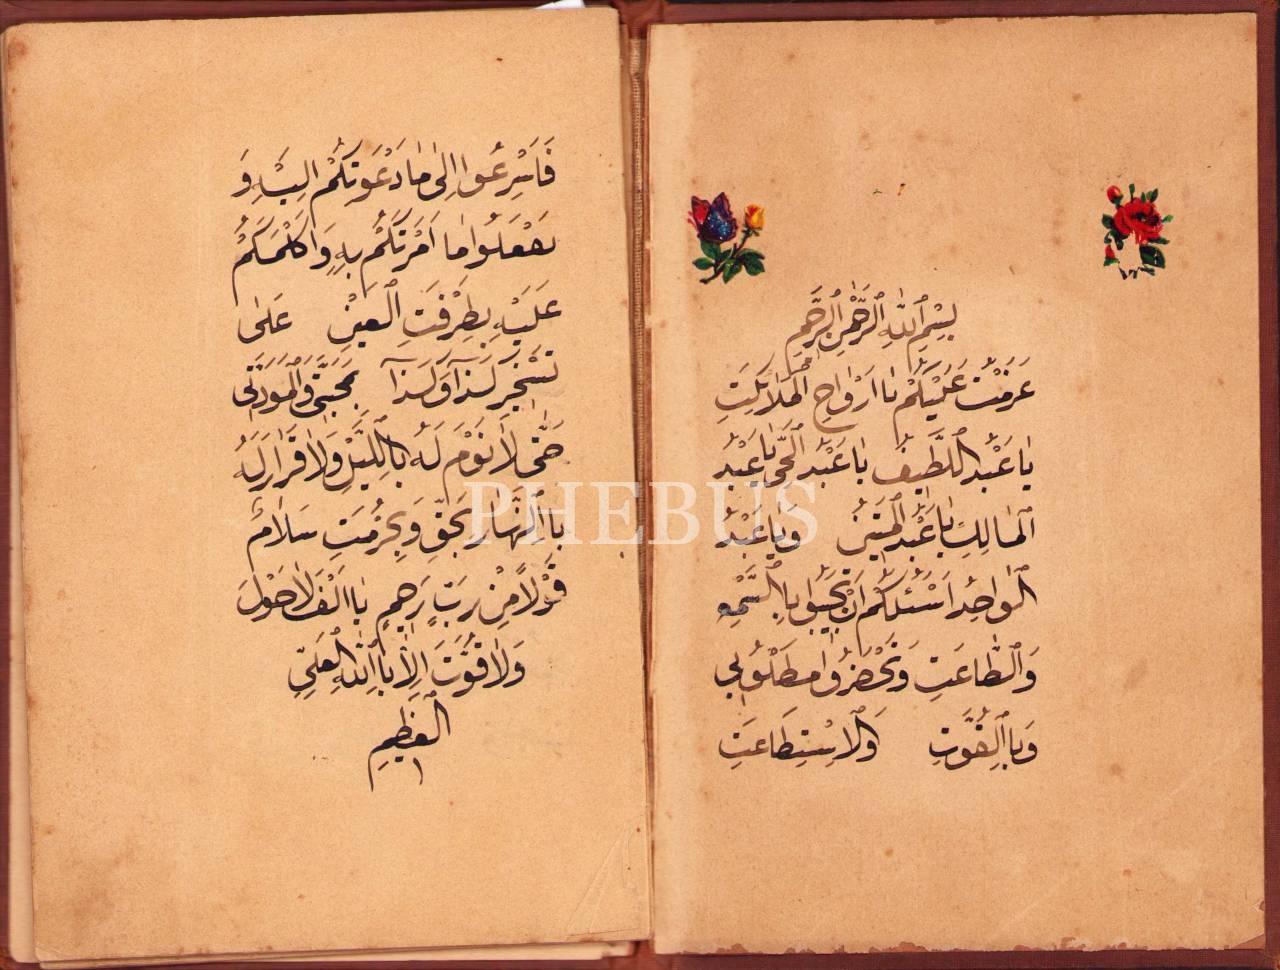 بِسْمِ ٱللّٰهِ ٱلرَّحْمٰنِ ٱلرَّحِيمِ
عَزَمْتُ عَلَيْكُمْ يٰا اَرْوٰاحِ ٱلْمَلَائِكَتِ
يٰا عَبْدُ اللَّطِيفْ يٰا عَبْدُ ٱلْحَىِّ يٰا عَبْدُ
ٱلْمٰالِكِ يٰا عَبْدُ ٱلْمَتِينْ وَيٰا عَبْدُ
ٱلْوٰاحِدْ اَسْئَلُكُمْ اَنْ تُجِيبُوا بِاٱلسَّمْعِ
وَٱلطّٰاعَتِ وَتَحْضَرُوا مَطْلُوبِي
وَبِاٱلْقُوَّتِ وَٱلْاِسْتِطَاعَتِ
فَاَسْرِعُوا اِلىٰ مٰا دَعَوْتُكُمْ اِلَيْهِ وَ
تَفْعَلُوا مٰا اَمَرْتُكُمْ بِهِ وَ
عَلَيْهِ بِطَرْفَتِ ٱلْعَيْنِ عَلىٰ
كَذٰا وَكَذٰا بِمَحَبَّتِى وَٱلْمَوَدَّتِى
حَتّٰى لٰا نَوْمَ لَهُ بِاٱللَّيْلِ وَلٰا قَرٰارَ لَهُ
بِاٱلنَّهٰارِ بِحَقِّ وَبِحُرْمَتِ سَلٰامٌ
قَوْلاً مِنْ رَبٍّ رَحِيمٍ يٰا اَلْفَ لٰا حَوْلَ
وَلٰا قُوَّتَ اِلّٰا بِاٱللّٰهِ ٱلْعَلِىِّ
ٱلْعَظِيمِ
PHEBUS